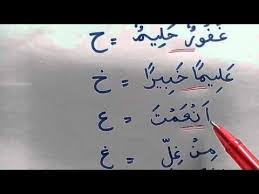 غَفُورٌ حَلِيمٌ = ح
عَلِيمًا خَبِيرًا = خ
اَنْعَمْتَ = ع
مِنْ غِلٍّ = غ